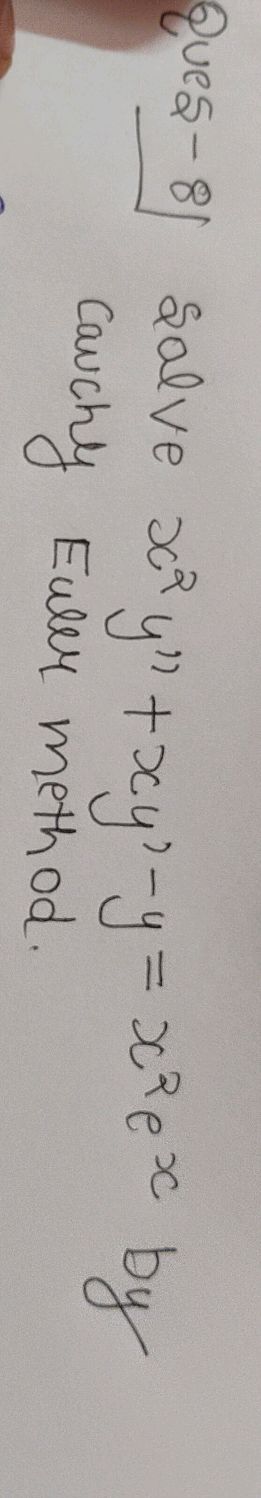 Ques-8
Solve x²y" + xy' - y = x²eˣ by
Cauchy Euler method.